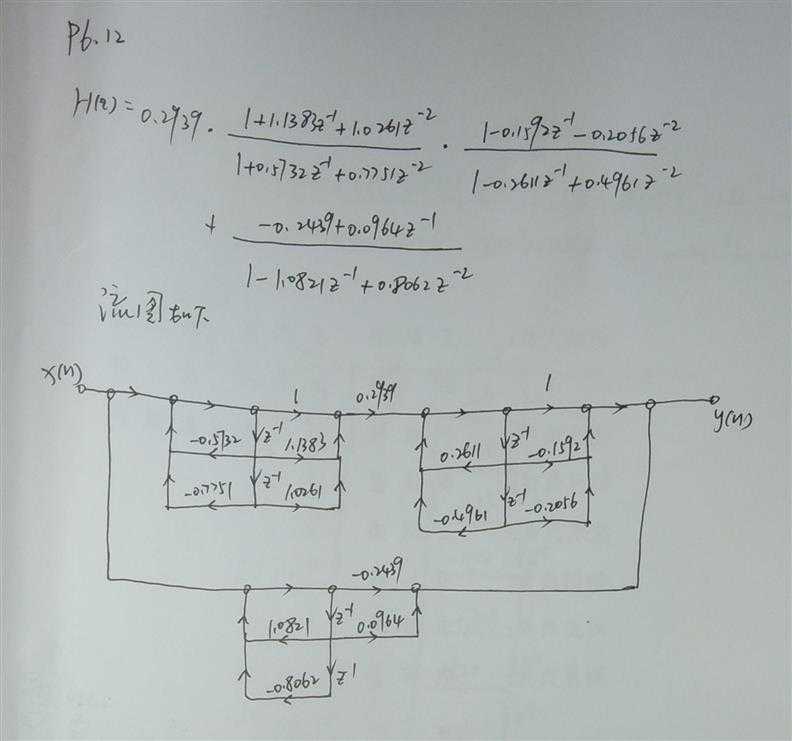 P6.12
H(z)=0.2939 · (1+1.1383z⁻¹+1.0261z⁻²)/(1+0.5732z⁻¹+0.7751z⁻²) · (1-0.1592z⁻¹-0.2056z⁻²)/(1-0.2611z⁻¹+0.4961z⁻²)
+ (-0.2439+0.0964z⁻¹)/(1-1.0821z⁻¹+0.8062z⁻²)
流图如下
x(n) 1 0.2939 1 y(n)
-0.5732 z⁻¹ 1.1383 0.2611 z⁻¹ -0.1592
-0.7751 z⁻¹ 1.0261 -0.4961 z⁻¹ -0.2056
-0.2439
1.0821 z⁻¹ 0.0964
-0.8062 z¹